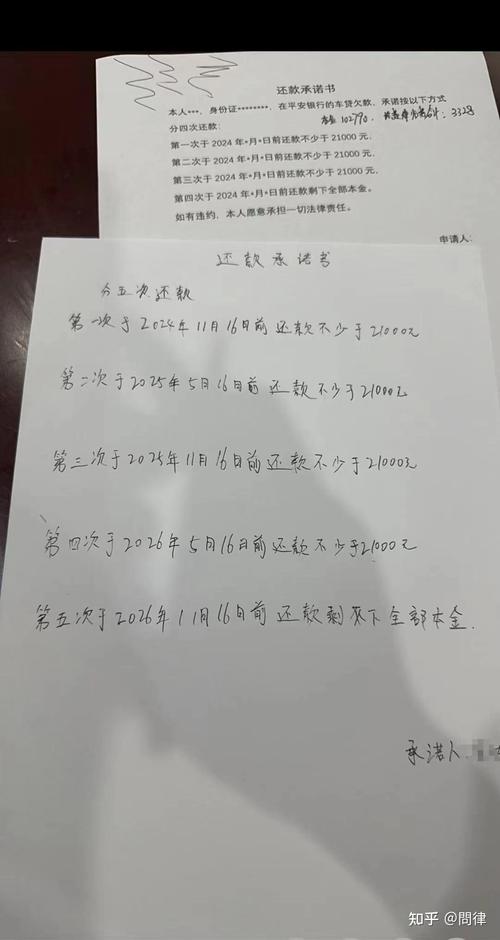 还款承诺书
本人***，身份证********，在平安银行的车贷欠款，承诺按以下方式
分四次还款：
102790. 3328
第一次于 2024 年*月*日前还款不少于 21000 元，
第二次于 2024 年*月*日前还款不少于 21000 元，
第三次于 2024 年*月*日前还款不少于 21000 元，
第四次于 2024 年*月*日前还款剩下全部本金。
如有违约，本人愿意承担一切法律责任。
申请人：
还款承诺书
分五次还款
第一次于2024年11月16日前还款不少于21000元
第二次于2025年5月16日前还款不少于21000元
第三次于2025年11月16日前还款不少于21000元
第四次于2026年5月16日前还款不少于21000元
第五次于2026年11月16日前还款剩下全部本金.
承诺人
知乎 @問律